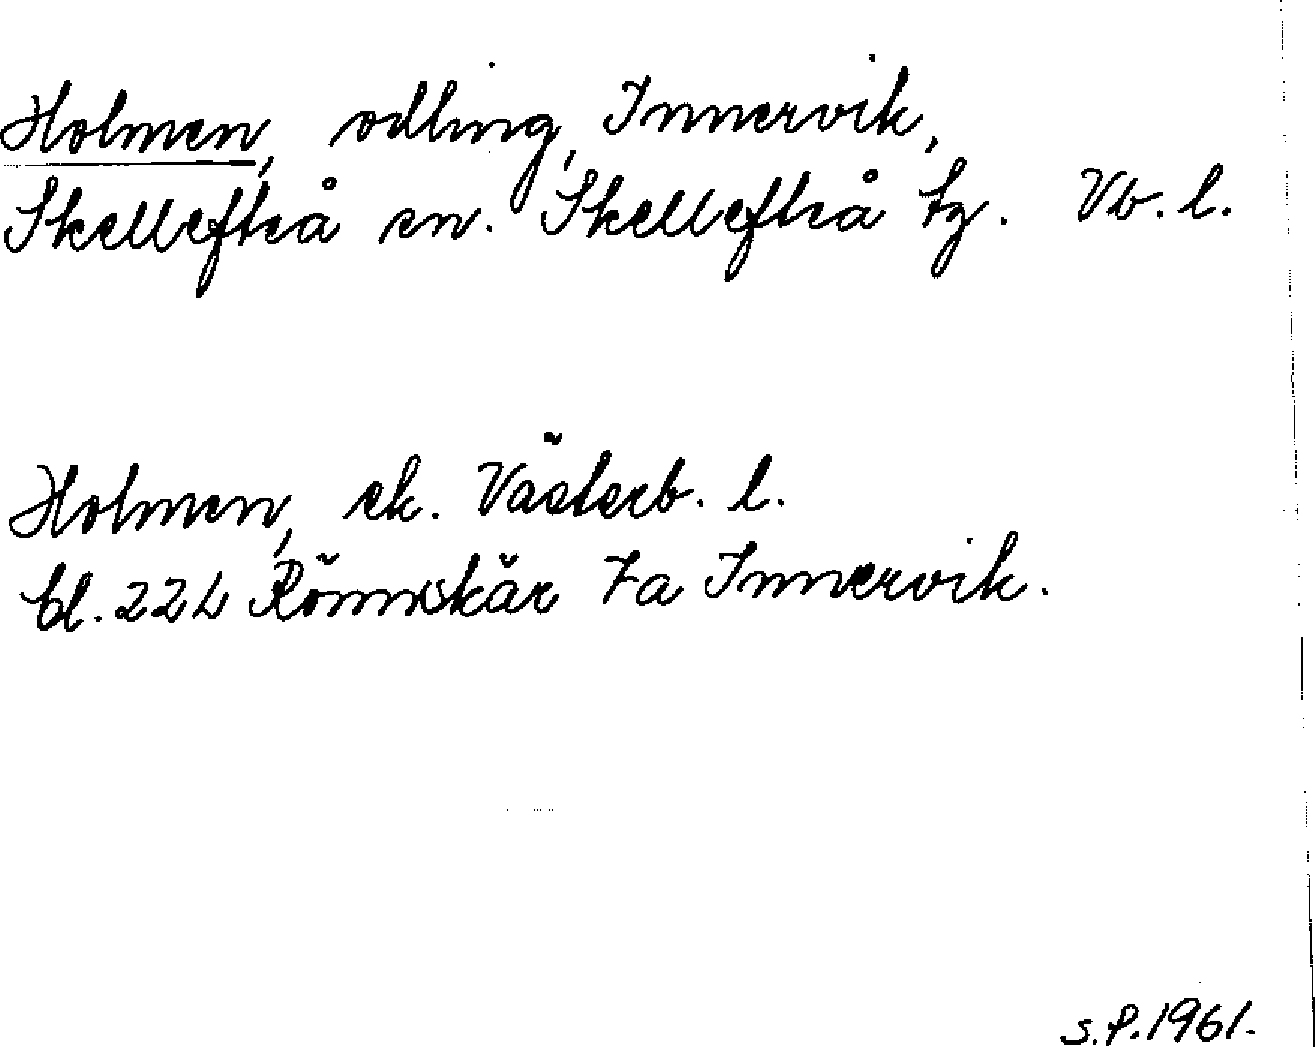 Holmen, odling, Innervik,
Skellefteå sn. Skellefteå tg. Vb. l.
Holmen, ek. Västerb. l.
bl. 22L Rönnskär 7a Innervik.
S.P. 1961.